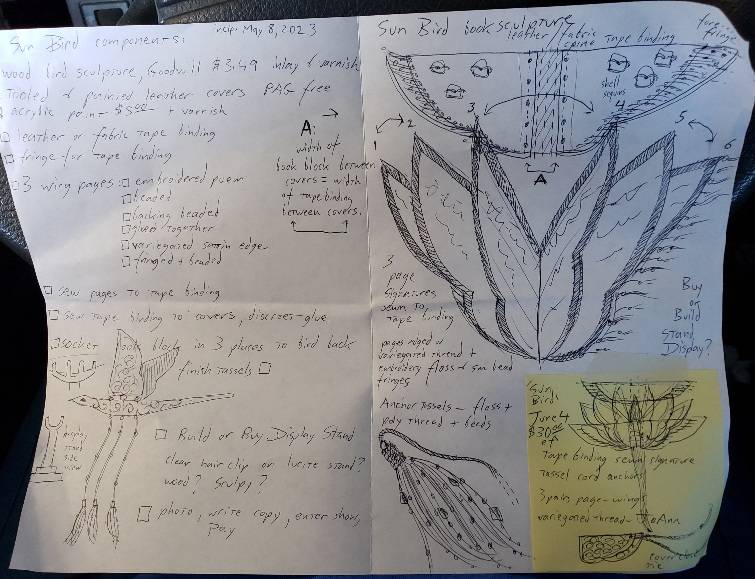 Sun Bird components:
May 8, 2023
wood bird sculpture, Goodwill $3.49 inlay & varnish
Tooled & painted leather covers PAG free
acrylic paint $5.00 + varnish
leather or fabric tape binding
fringe for tape binding
3 wing pages: embroidered poem
beaded
backing beaded
glued together
variegated satin edge
fringed + beaded
A:
width of
book block between
covers = width
of tape binding
between covers.
sew pages to tape binding
Sew tape binding to covers, discreet glue
Socket book block in 3 places to bird back
finish tassels
display
stand
side
view
Build or Buy Display Stand
clear hair clip or lucite stand?
wood? Sculpy?
photo, write copy, enter show,
Pay
Sun Bird book sculpture
leather/fabric
spine tape binding
faux
fringe
shell
sequins
1
2
3
4
5
6
A
3
page
signatures
sewn to
tape binding
pages edged w
variegated thread +
embroidery floss & sm bead
fringes
Buy
or
Build
Stand
Display?
Anchor Tassels - floss +
poly thread + beads
Sun
Bird
June 4
$30.00
Tape binding sewn signature
Tassel cord anchors
3 pairs page-wings
variegated thread - JoAnn
cover close